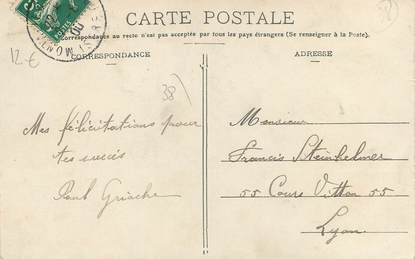 CARTE POSTALE
Correspondance au recto n'est pas acceptée par tous les pays étrangers (Se renseigner à la Poste)
CORRESPONDANCE
ADRESSE
12 €
38
Mes félicitations pour
tes succès
Paul
Monsieur
Francis Steinhelmer
55 Cours Vitton 55
Lyon